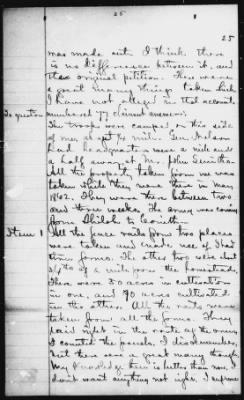 25
25
was made out I think. there
is no difference between it, and
the original petition. There were
a great many things taken which
I have not alleged in that account.
To question numbered 77 claimant answers:
The troops were camped on this side
of me about 3/4 mile. Gen. Nelson
had headquarters were a mile and
a half away at Mr. John
All the property taken from me was
taken while they were there in May
1862. They were there between two
and three weeks. The army was coming
from Shiloh to Corinth.
Item 1 All the fence rails from two places
were taken and made use of. I had
two farms. The other two were about
3/4 of a mile from the homestead.
There were 50 acres in cultivation
in one, and 90 acres cultivated
in the other. All the rails were
taken from all the farms. They
laid right in the route of the army
I counted the panels. I disremember,
but there were a great many though.
My knowledge then is better than now. I
don't want anything not right. I